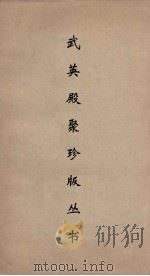 武英殿聚珍版丛书
研狗